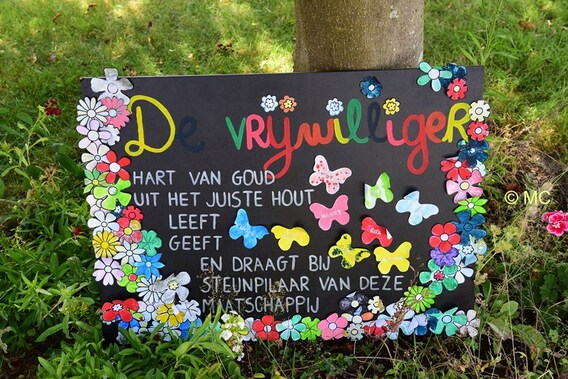 De VRIJWilligER
HART VAN GOUD
UIT HET JUISTE HOUT
LEEFT
GEEFT
EN DRAAGT BIJ
STEUNPILAAR VAN DEZE
MAATSCHAPPIJ
© MC